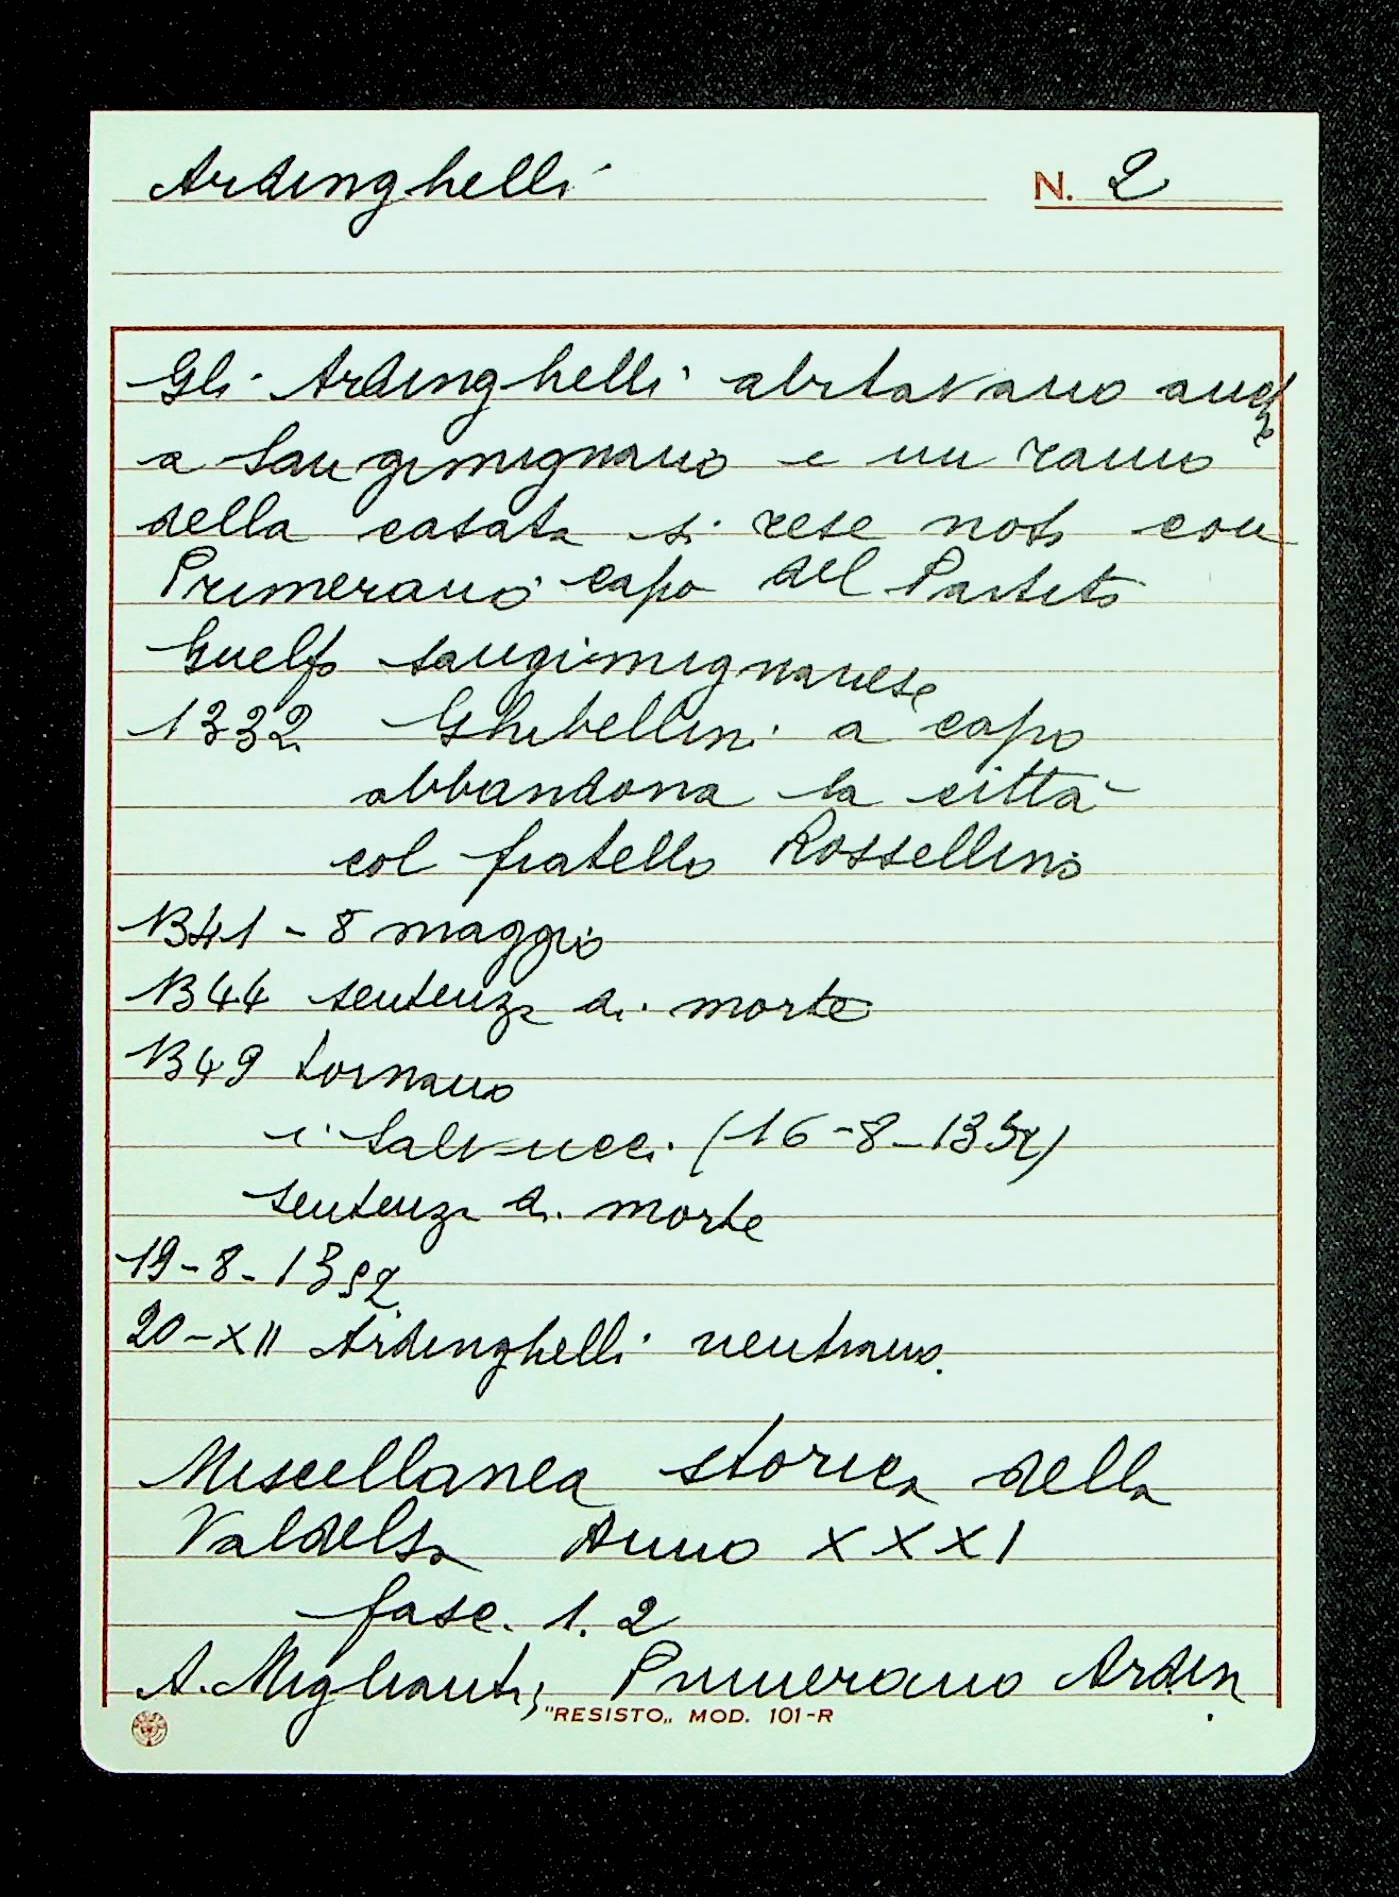 Ardinghelli N. 2
Gli Ardinghelli abitavano anche
a Sangimignano e un ramo
della casata si rese noto con
Primerano capo del Partito
Guelfo sangimignanese
1332 Ghibellini a capo
abbandona la città
col fratello Rossellino
1341 - 8 maggio
1344 sentenza di morte
1349 tornano
i Salvucci (16-8-1352)
sentenza di morte
19-8-1352
20-XII Ardinghelli rientrano.
Miscellanea storica della
Valdelsa Anno XXXI
fasc. 1.2
A. Miglianti; Primerano Ardin
"RESISTO„ MOD. 101-R